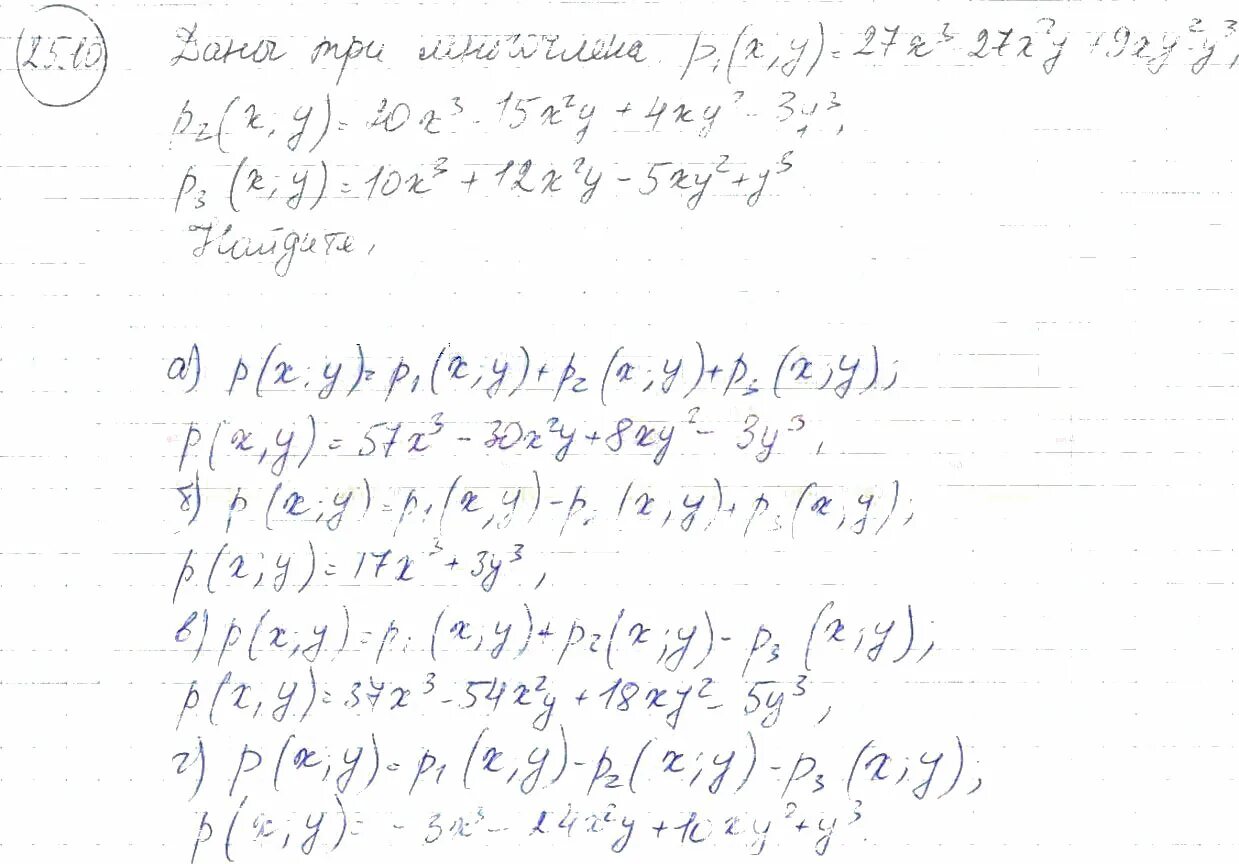 25.10 Даны три многочлена p₁(x,y)=27x³-27x²y+9xy²-y³,
p₂(x;y)=20x³-15x²y+4xy²-3y³,
p₃(x;y)=10x³+12x²y-5xy²+y³
Найдите,
а) p(x;y)=p₁(x;y)+p₂(x;y)+p₃(x;y);
p(x,y)=57x³-30x²y+8xy²-3y³,
б) p(x;y)=p₁(x,y)-p₂(x,y)+p₃(x,y);
p(x;y)=17x³+3y³,
в) p(x;y)=p₁(x;y)+p₂(x;y)-p₃(x;y);
p(x,y)=37x³-54x²y+18xy²-5y³,
г) p(x;y)=p₁(x,y)-p₂(x;y)-p₃(x;y);
p(x,y)=-3x³-24x²y+10xy²+y³